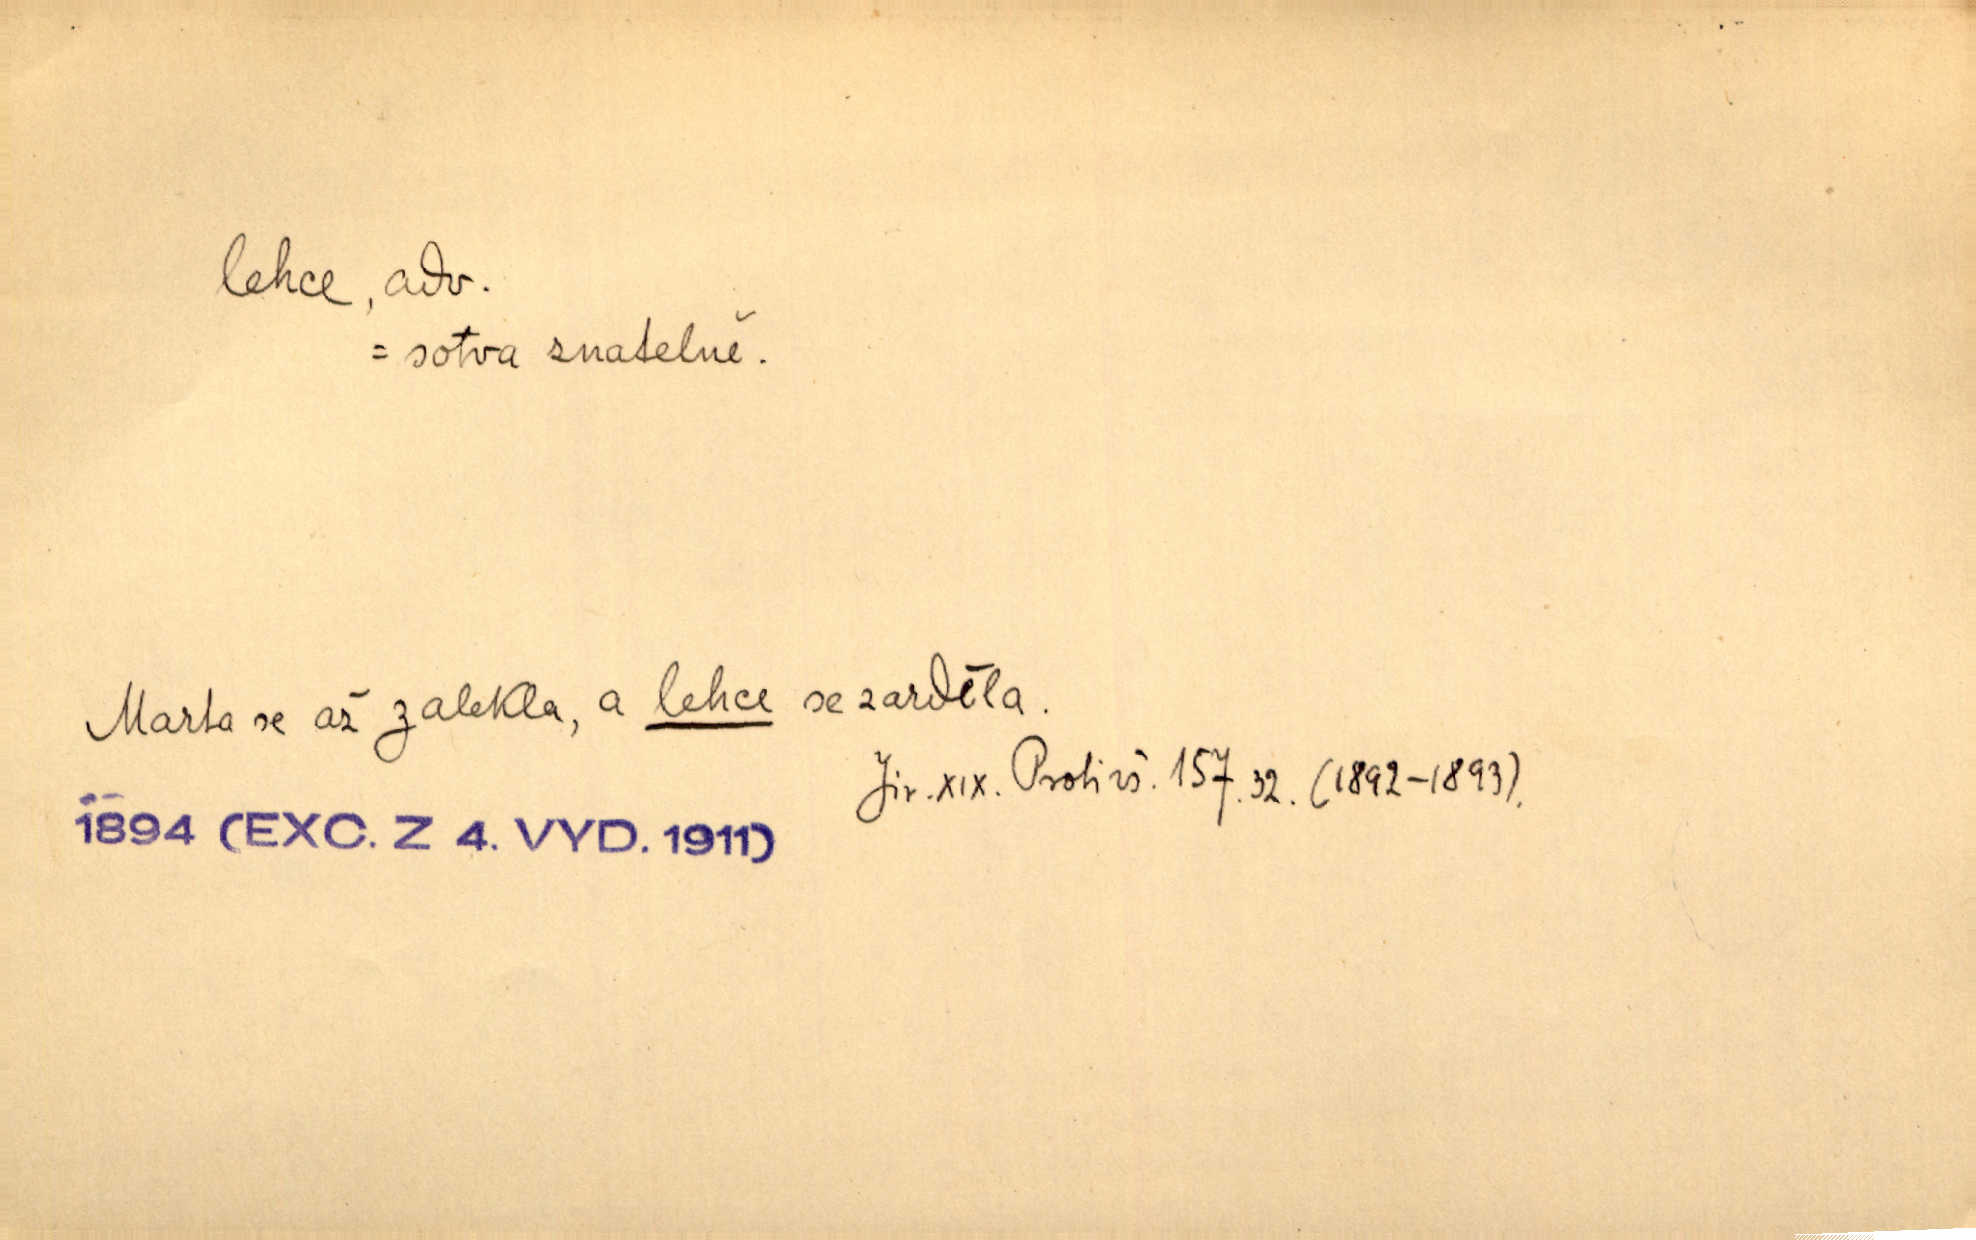 lehce, adv.
= sotva znatelně.
Marta se až zalekla, a lehce se zarděla.
Jir. XIX. Proti vš. 157.32. (1892-1893).
1894 (EXC. Z 4. VYD. 1911)